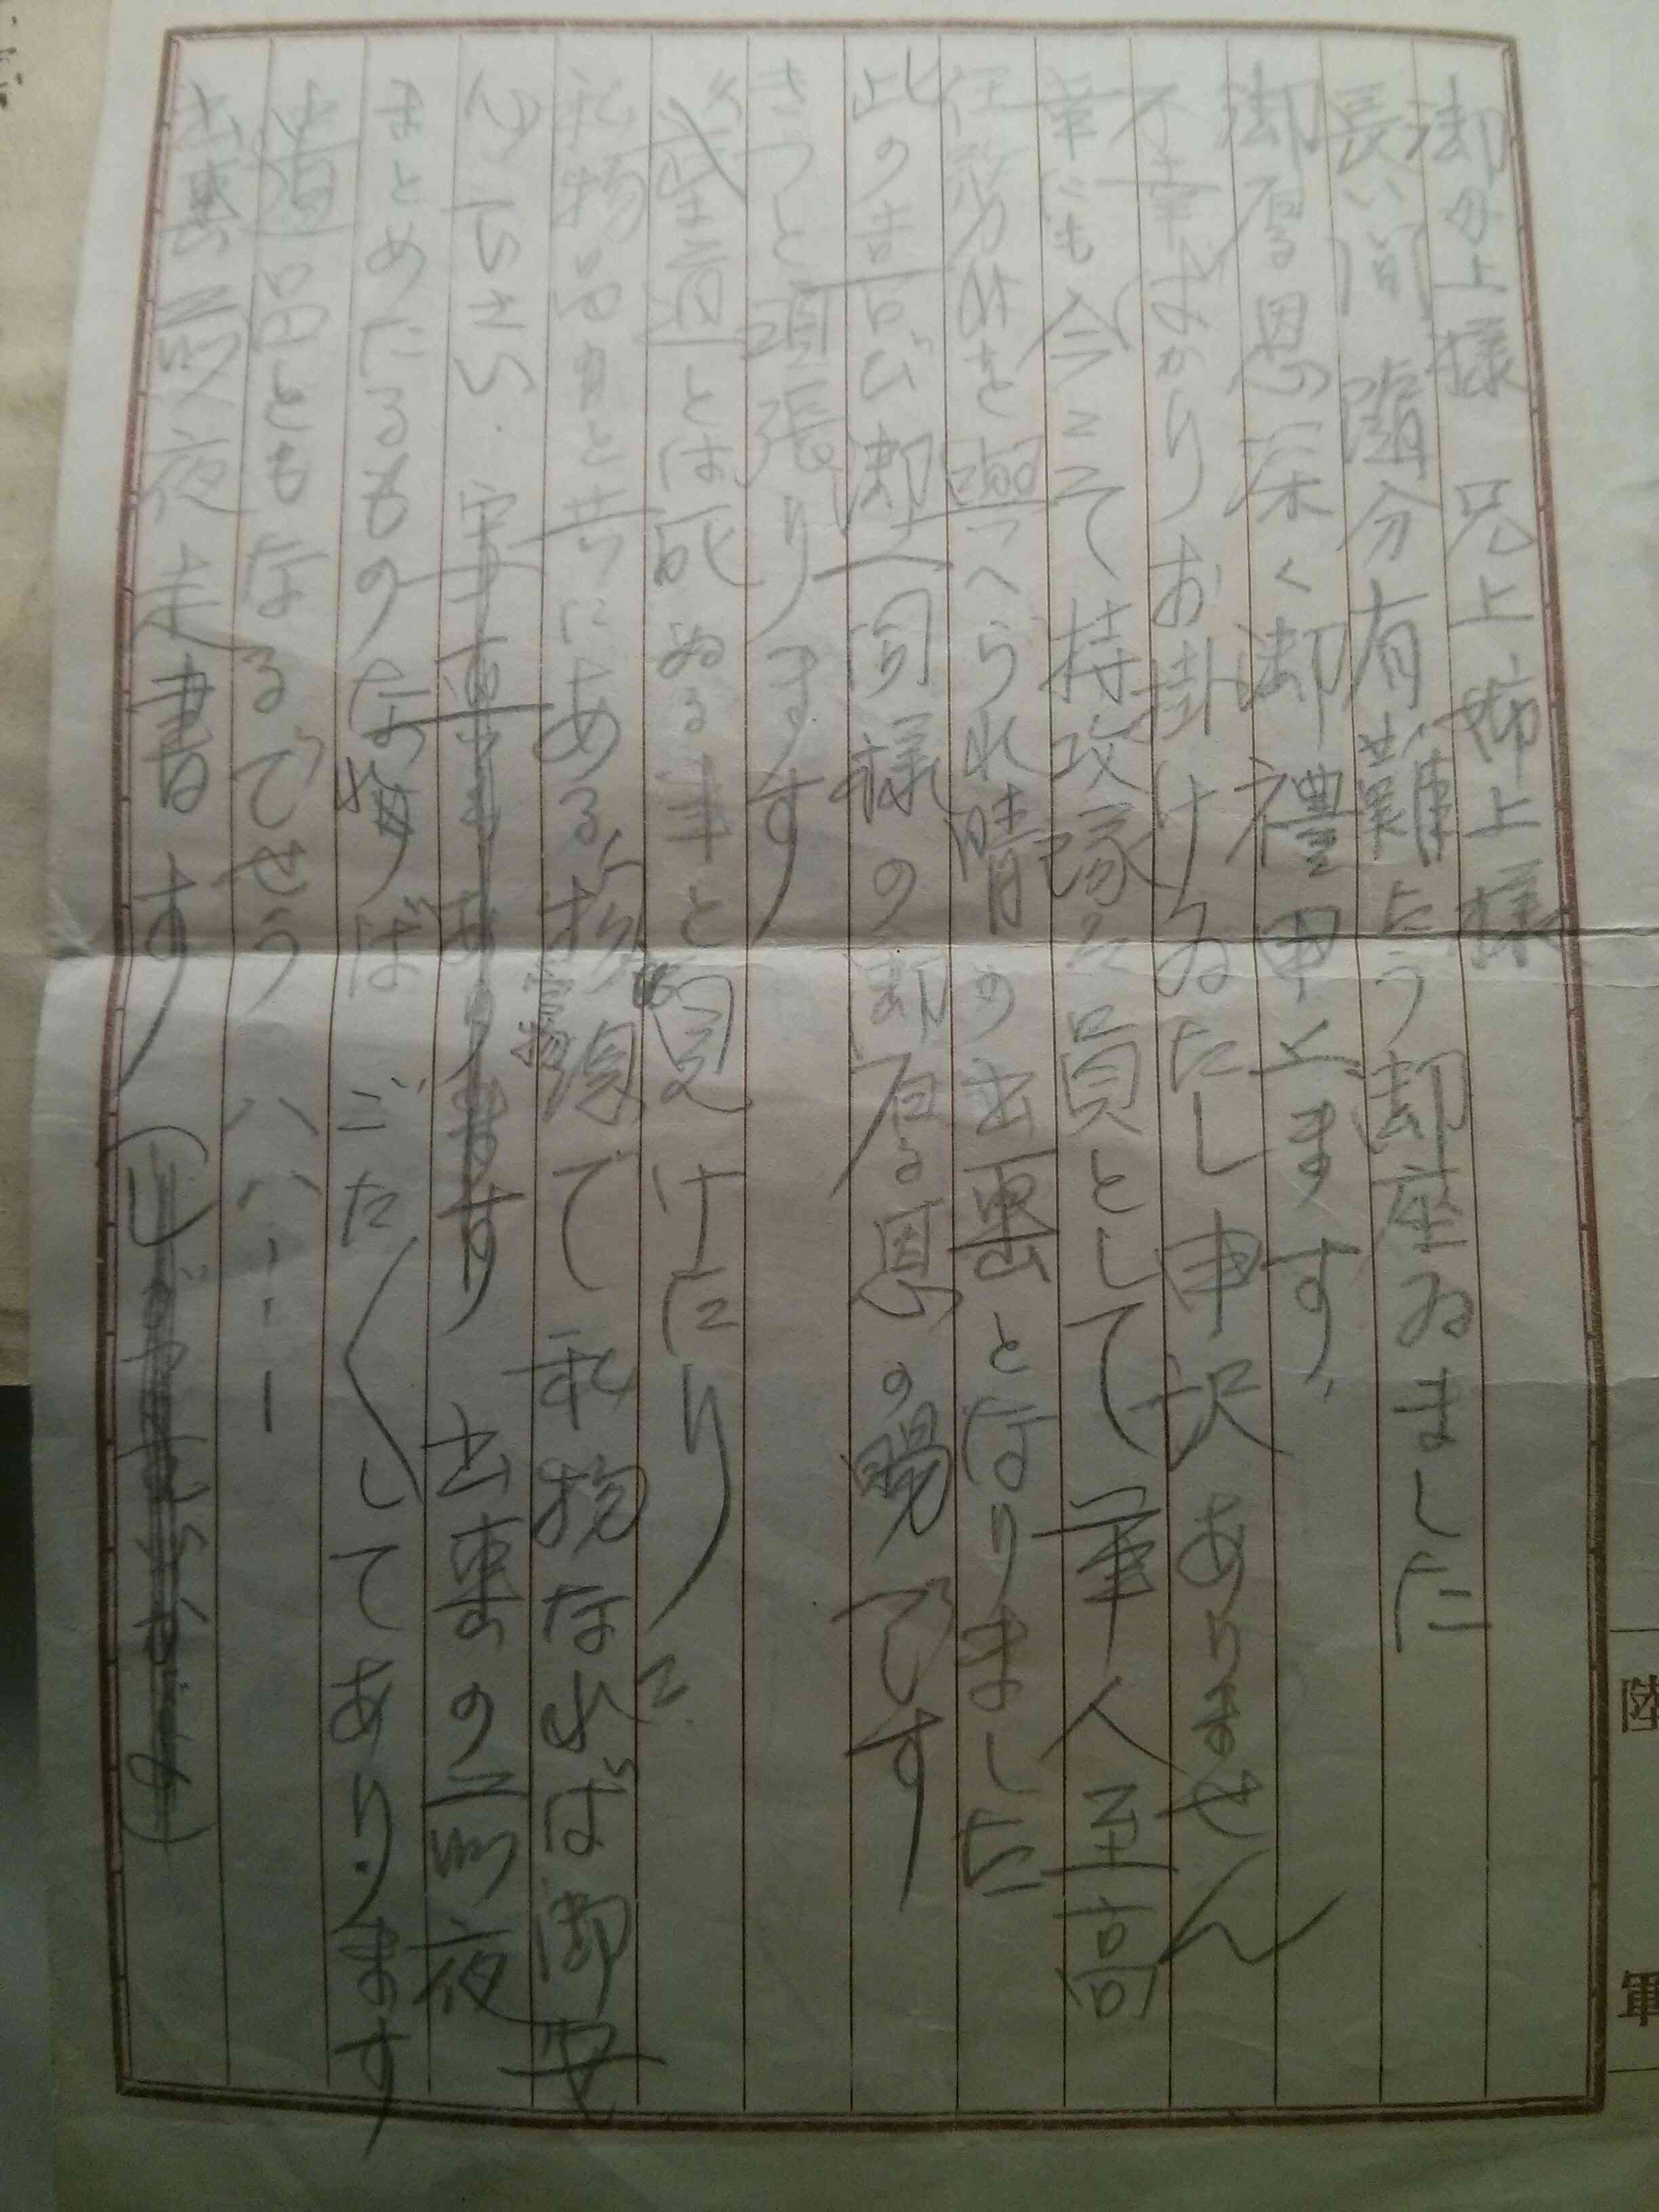 御母上様 兄上 姉上様
長い間 随分有難たう御座ゐました
御厚恩深く御禮申上ます、
不幸ばかりお掛けゐたし申訳ありません
幸にも今こて特攻隊員として軍人至高
任務を與へられ晴の出撃となりました
此の喜び御一同様の御厚恩の賜です
きつと頑張ります
武士道とは死ぬる事と見つけたりニ
私物品と共にある
で私物なれば御安
下さい 出撃の前夜
まとめたるものなればごた〱してあります
遺品ともなるでせう ハハ
出撃前夜走書す
陸
軍